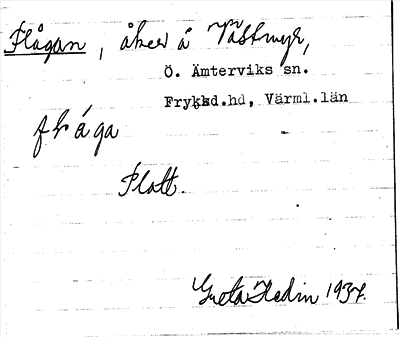 Flågan, åker å Västmyr,
Ö. Ämterviks sn.
Fryksd.hd, Värml.län
flåga
Platt.
Greta Hedin 1937.